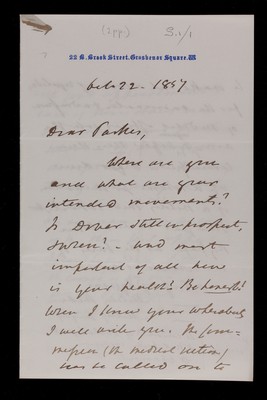 (2pp)
S.1/1
22 B. Brook Street. Grosvenor Square. W
Oct 22 - 1897
Dear Parker,
Where are you
and what are your
intended movements?
Is Dover still in prospect,
- and most
important of all how
is your health? Be honest!
When I know your whereabouts
I will write you. The
(the medical section)
has so called on to